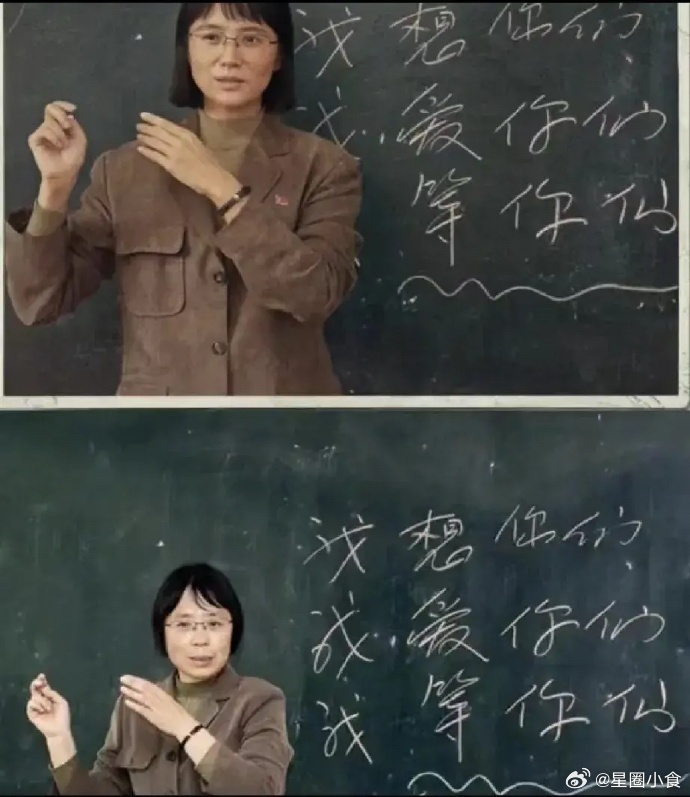 我想你们、
我爱你们
等你们
我想你们、
我爱你们
我等你们
@星圈小食